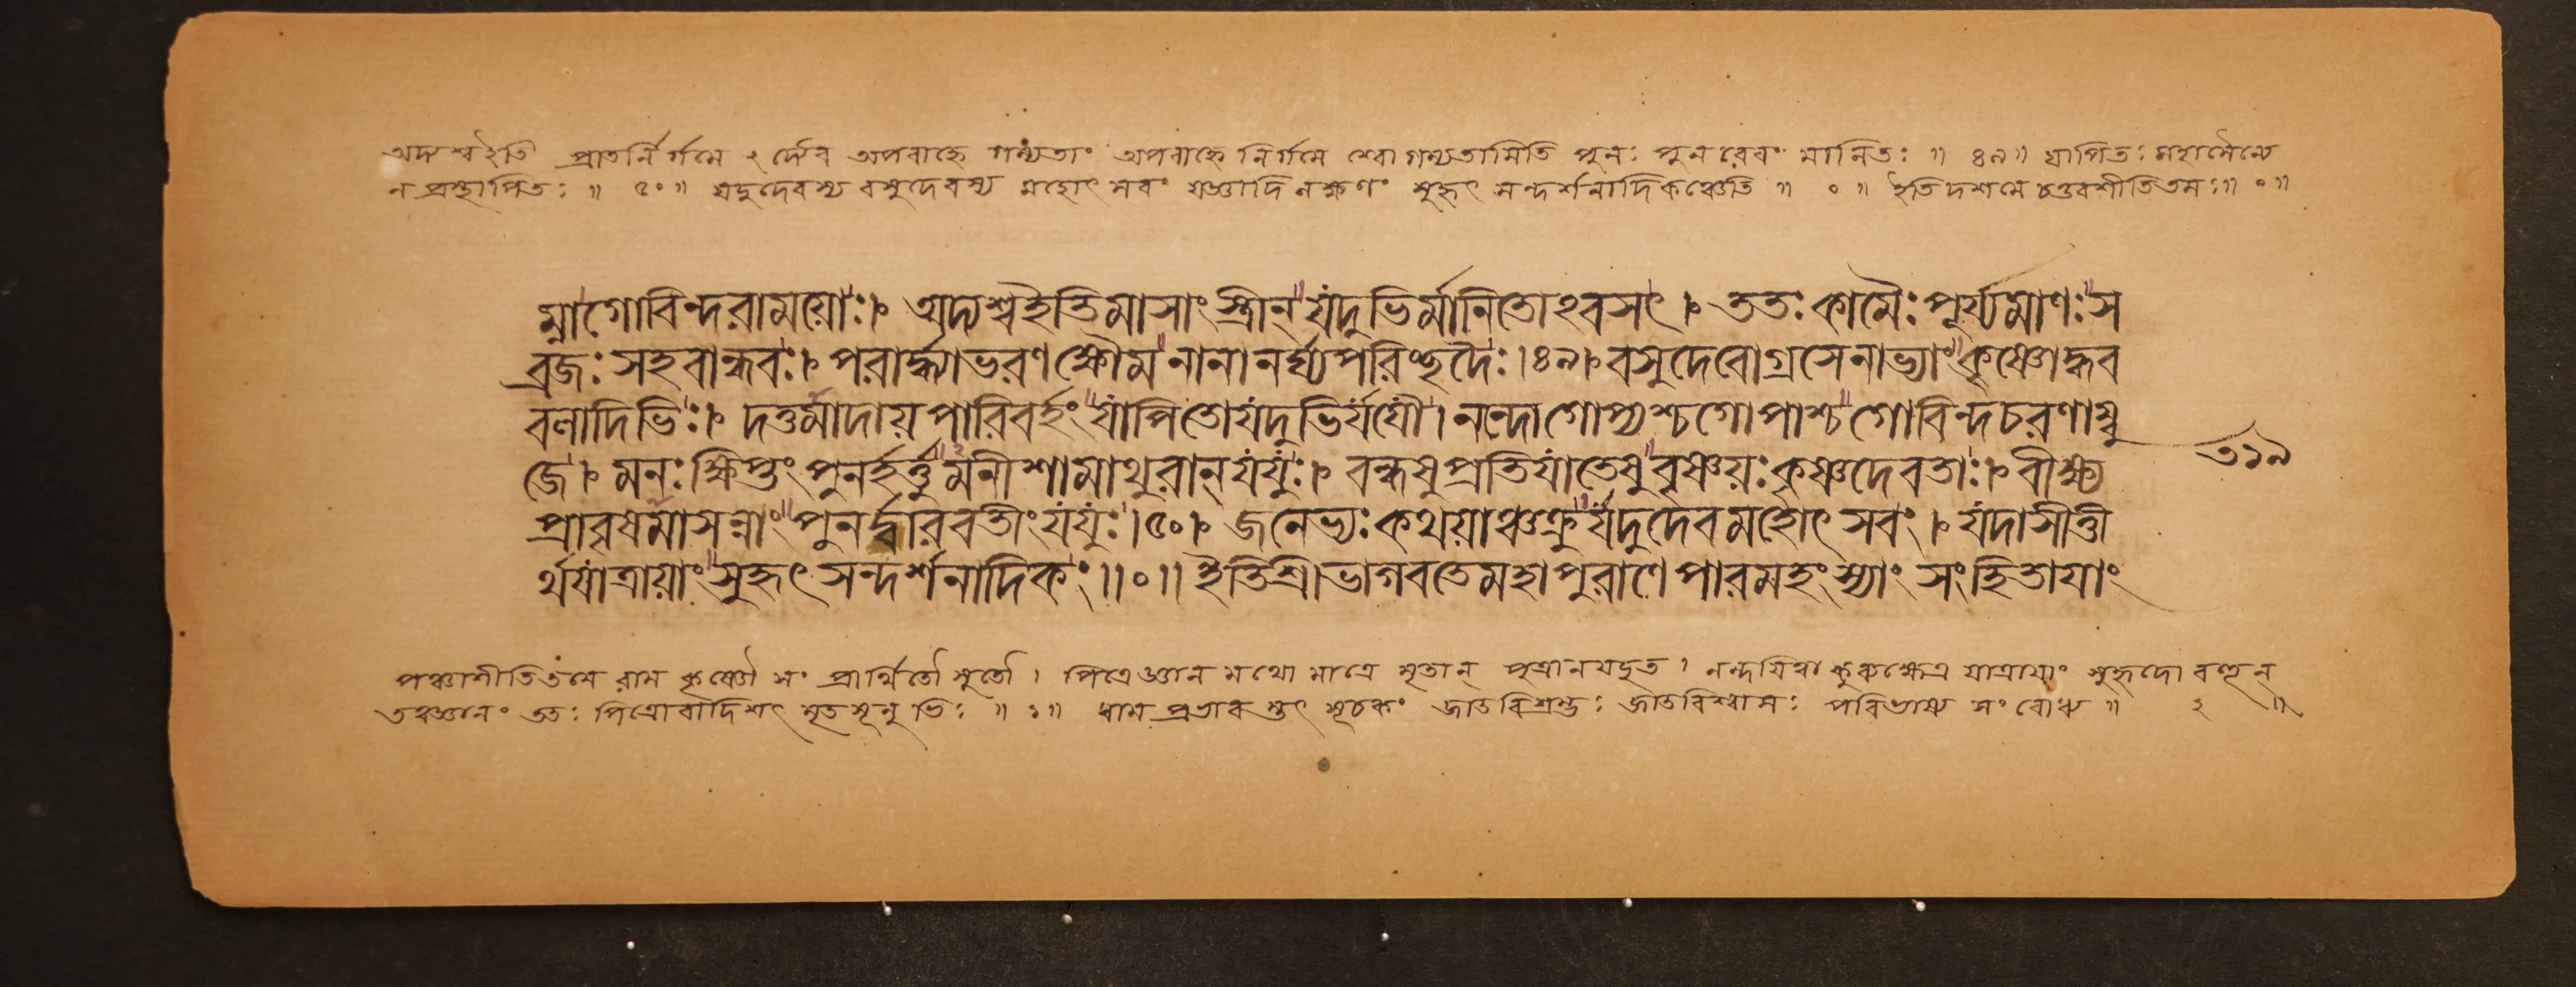 অদ্যশ্বইতি প্রাতর্নির্গমে ২ র্দ্যৈব অপরাহ্নে গম্যতাং অপরাহ্নে নির্গমে শ্বো গম্যতামিতি পুনঃ পুনরেবং মানিতঃ ॥ ৪৯ ॥ যাপিতঃ মহাসৈন্যে
ন প্রস্থাপিতঃ ॥ ৫০ ॥ যদুদেবস্য বসুদেবস্য মহোৎসবং যজ্ঞাদিলক্ষণং সুহৃৎ সন্দর্শনাদিকঞ্চেতি ॥ ০ ॥ ইতি দশমে চতুরশীতিতমঃ ॥ ০ ॥
ম্নাগোবিন্দরাময়োঃ । অদ্যশ্বইতিমাসাংস্ত্রীন্ যদুভির্মানিতোঽবসৎ । ততঃ কামৈঃ পূর্য্যমাণঃস
ব্রজঃ সহবান্ধবঃ । পরার্দ্ধ্যাভরণক্ষৌমনানানর্ঘ্যপরিচ্ছদৈঃ । ৪৯ । বসুদেবোগ্রসেনাভ্যাংকৃষ্ণোদ্ধব
বলাদিভিঃ । দত্তমাদায়পারিবর্হং যাপিতোযদুভির্যযৌ । নন্দোগোপ্যশ্চগোপাশ্চগোবিন্দচরণাম্বু
জে । মনঃ ক্ষিপ্তং পুনর্হর্ত্তুমনীশামাথুরান্ যযুঃ । বন্ধষুপ্রতিযাতেষুবৃষ্ণয়ঃকৃষ্ণদেবতাঃ । বীক্ষ্য
৩১৯
প্রাবৃষমাসন্নাং পুনর্দ্বারবতীংযযুঃ । ৫০ । জনেভ্যঃকথয়াঞ্চক্রুর্যদুদেবমহোৎসবং । যদাসীত্তী
র্থযাত্রায়াং সুহৃৎসন্দর্শনাদিকং ॥ ০ ॥ ইতিশ্রীভাগবতেমহাপুরাণেপারমহংস্যাং সংহিতাযাং
পঞ্চাশীতিতমে রাম কৃষ্ণৌ সং প্রার্থিতৌ সুতৌ । পিত্রে জ্ঞান মথো মাত্রে মৃতান্ পুত্রানযচ্ছত । নন্দযিত্বা কুরুক্ষেত্র যাত্রাযাং সুহৃদো বহূন্
তত্ত্বজ্ঞানং ততঃ পিত্রো মৃতসূনুভিঃ ॥ ১ ॥ ধাম প্রভাব স্তৎ সূচকং জাতবিশ্রম্ভঃ জাতবিশ্বাসঃ পরিভাষ্য সং বোধ্য ॥ ২ ॥